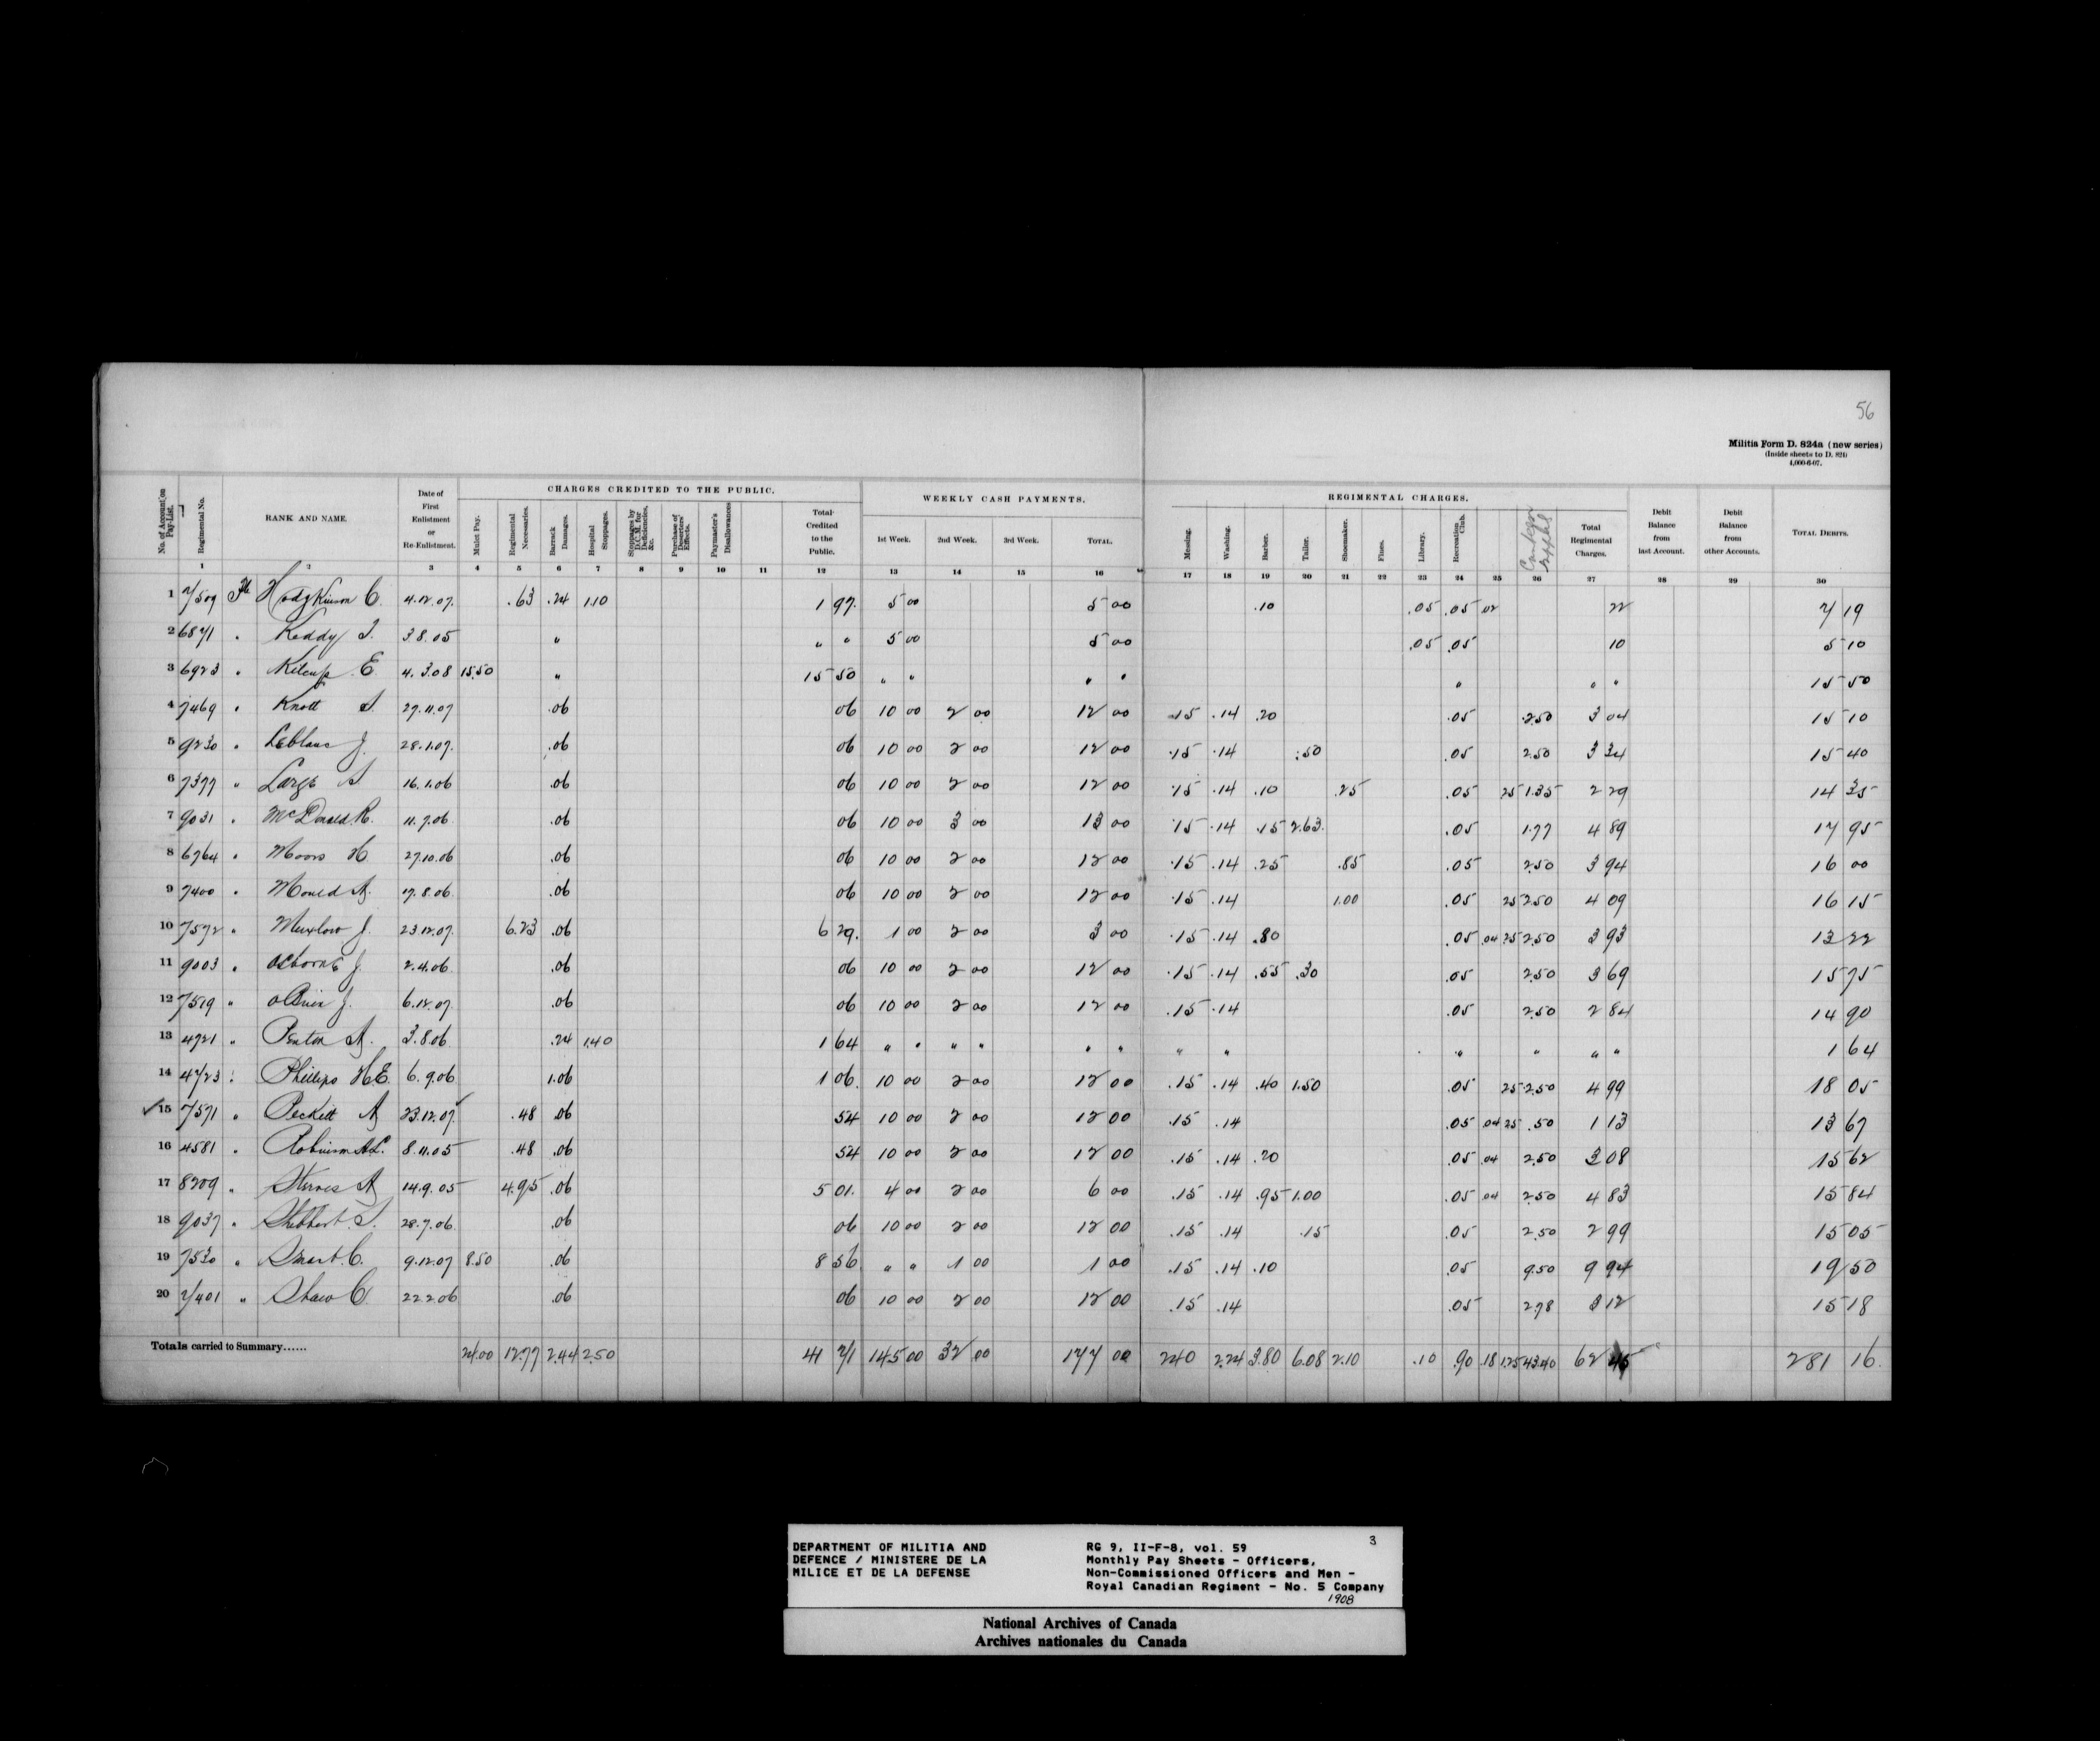 56
Militia Form D. 824a (new series)
(Inside sheets to D. 824)
4,000-6-07.
CHARGES CREDITED TO THE PUBLIC. WEEKLY CASH PAYMENTS. REGIMENTAL CHARGES.
No. of Account on Pay-List. Regimental No. RANK AND NAME. Date of First Enlistment or Re-Enlistment. Mulct Pay. Regimental Necessaries. Barrack Damages. Hospital Stoppages. Stoppages by D.C.M. for Deficiencies, &c. Purchase of Deserters' Effects. Paymaster's Disallowances Total Credited to the Public. 1st Week. 2nd Week. 3rd Week. TOTAL. Messing. Washing. Barber. Tailor. Shoemaker. Fines. Library. Recreation Club. Total Regimental Charges. Debit Balance from last Account. Debit Balance from other Accounts. TOTAL DEBITS.
1 2 3 4 5 6 7 8 9 10 11 12 13 14 15 16 17 18 19 20 21 22 23 24 25 26 27 28 29 30
1 7509 Pte Hodgkinson C. 4.12.07. .63 .24 1.10 1 97. 5 00 5 00 .10 .05 .05 .02 22 7 19
2 6871 " Keddy J. 3.8.05 " " " 5 00 5 00 .05 .05 10 5 10
3 6923 " Kilcup E. 4.3.08 15.50 " 15 50 " " " " " " " 15 50
4 7469 " Knott S. 27.11.07 .06 06 10 00 2 00 12 00 .15 .14 .20 .05 2.50 3 04 15 10
5 9230 " LeBlanc J. 28.1.07. .06 06 10 00 2 00 12 00 .15 .14 .50 .05 2.50 3 34 15 40
6 7377 " Large S 16.1.06 .06 06 10 00 2 00 12 00 .15 .14 .10 .25 .05 25 1.35 2 29 14 35
7 9031 " McDonald R. 11.7.06 .06 06 10 00 3 00 13 00 .15 .14 .15 2.63 .05 1.77 4 89 17 95
8 6764 " Moors H. 27.10.06 .06 06 10 00 2 00 12 00 .15 .14 .25 .85 .05 2.50 3 94 16 00
9 7400 " Mould A. 17.8.06 .06 06 10 00 2 00 12 00 .15 .14 1.00 .05 25 2.50 4 09 16 15
10 7572 " Muxlow J. 23.12.07. 6.23 .06 6 29. 1 00 2 00 3 00 .15 .14 .80 .05 .04 25 2.50 3 93 13 22
11 9003 " Osborne J. 2.4.06 .06 06 10 00 2 00 12 00 .15 .14 .55 .30 .05 2.50 3 69 15 75
12 7519 " O'Brien J. 6.12.07. .06 06 10 00 2 00 12 00 .15 .14 .05 2.50 2 84 14 90
13 4721 " Penton A. 3.8.06 .24 1.40 1 64 " " " " " " " " " " " " 1 64
14 4723 " Phillips H.E. 6.9.06 1.06 1 06. 10 00 2 00 12 00 .15 .14 .40 1.50 .05 25 2.50 4 99 18 05
✓15 7571 " Peckitt A 23.12.07. ✓ .48 .06 54 10 00 2 00 12 00 .15 .14 .05 .04 25 .50 1 13 13 67
16 4581 " Robinson A.L. 8.11.05 .48 .06 54 10 00 2 00 12 00 .15 .14 .20 .05 .04 2.50 3 08 15 62
17 8209 " A 14.9.05 4.95 .06 5 01. 4 00 2 00 6 00 .15 .14 .95 1.00 .05 .04 2.50 4 83 15 84
18 9037 " 28.7.06 .06 06 10 00 2 00 12 00 .15 .14 .15 .05 2.50 2 99 15 05
19 7530 " Smart C. 9.12.07 8.50 .06 8 56 " " 1 00 1 00 .15 .14 .10 .05 9.50 9 94 19 50
20 7401 " Shaw C. 22.2.06 .06 06 10 00 2 00 12 00 .15 .14 .05 2.78 3 12 15 18
Totals carried to Summary...... 24.00 12.77 2.44 2.50 41 71 145 00 32 00 177 00 2 40 2.24 3.80 6.08 2.10 .10 .90 .18 1.25 43.40 62 45 281 16.
DEPARTMENT OF MILITIA AND
DEFENCE / MINISTERE DE LA
MILICE ET DE LA DEFENSE
3
RG 9, II-F-8, vol. 59
Monthly Pay Sheets - Officers,
Non-Commissioned Officers and Men -
Royal Canadian Regiment - No. 5 Company
1908
National Archives of Canada
Archives nationales du Canada